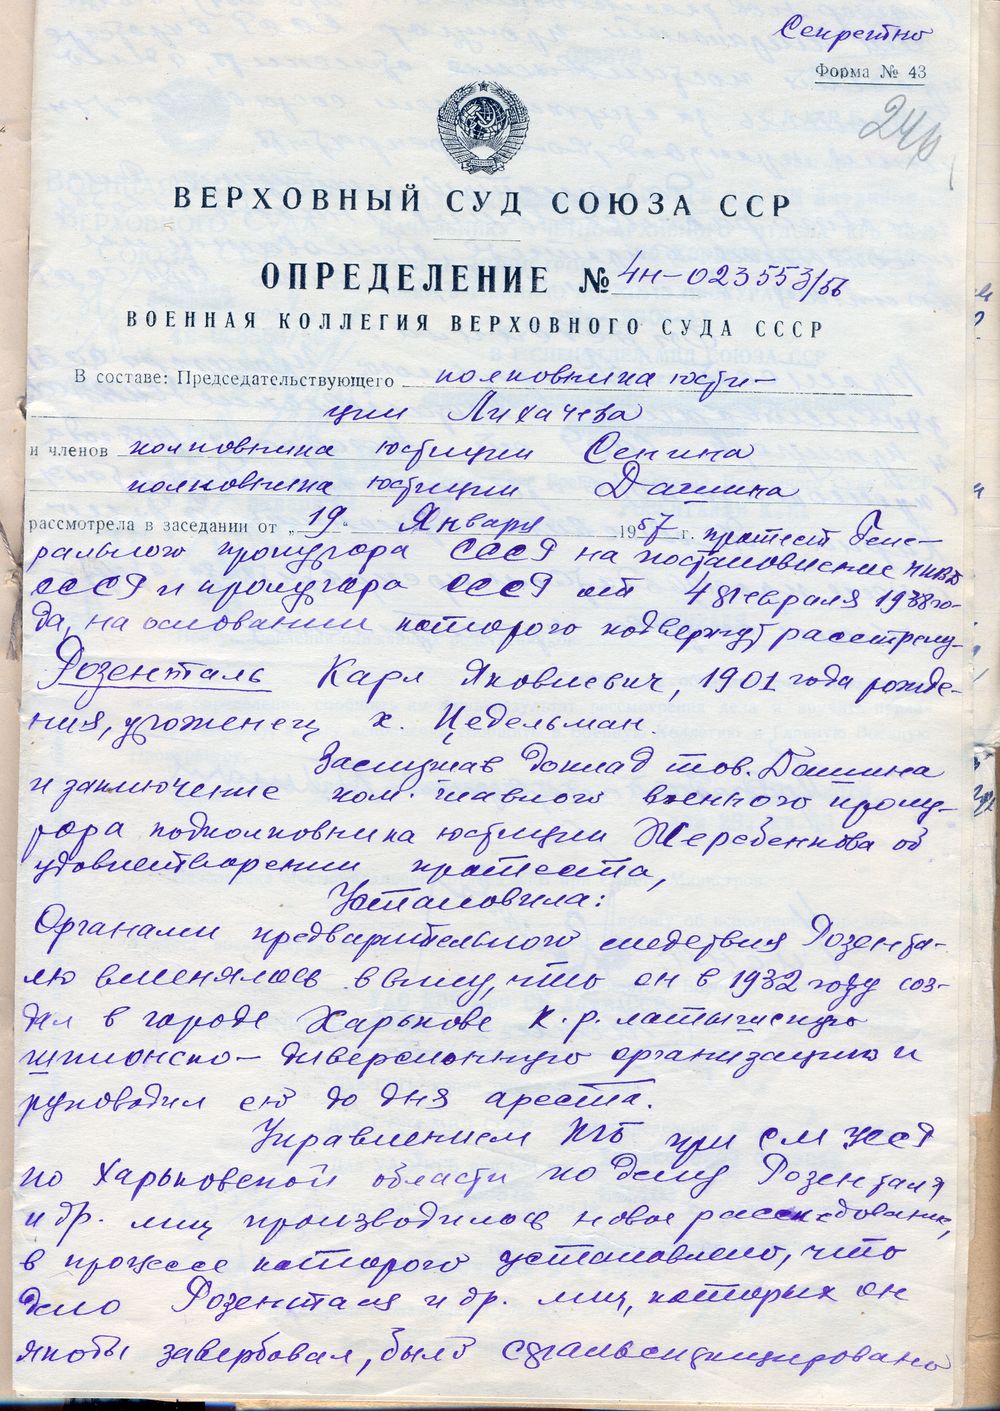 Секретно
Форма № 43
246
ВЕРХОВНЫЙ СУД СОЮЗА ССР
ОПРЕДЕЛЕНИЕ № 4н-023553/56
ВОЕННАЯ КОЛЛЕГИЯ ВЕРХОВНОГО СУДА СССР
В составе: Председательствующего полковника юсти-
ции Лихачева
и членов полковника юстиции Сенина
полковника юстиции Дашина
рассмотрела в заседании от „19“ Января 1957 г. протест Гене-
рального прокурора СССР на постановление НКВД
СССР и прокурора СССР от 4 февраля 1938 го-
да, на основании которого подвергнут расстрелу
Розенталь Карл Яковлевич, 1901 года рожде-
ния, уроженец х. Цедельман.
Заслушав доклад тов. Дашина
и заключение пом. главного военного проку-
рора подполковника юстиции Жеребенкова об
удовлетворении протеста,
Установила:
Органами предварительного следствия Розента-
лю вменялось в вину, что он в 1932 году соз-
дал в городе Харькове к.р. латышскую
шпионско-диверсионную организацию и
руководил ею до дня ареста.
Управлением КГБ при СМ УССР
по Харьковской области по делу Розенталя
и др. лиц производилось новое расследование,
в процессе которого установлено, что
дело Розенталя и др. лиц, которых он
якобы завербовал, было сфальсифицировано